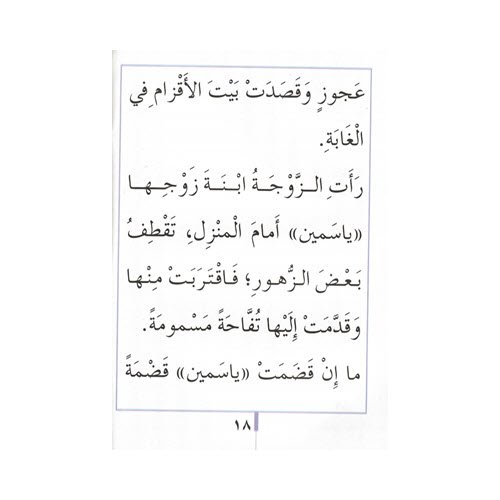 عَجوزٍ وَقَصَدَتْ بَيْتَ الأَقْزامِ في
الْغَابَةِ.
رَأَتِ الـزَّوْجَـةُ ابْـنَـةَ زَوْجِـهـا
«ياسَمين» أَمامَ الْمَنْزِلِ، تَقْطِفُ
بَعْضَ الزُّهورِ؛ فَاقْتَرَبَتْ مِنْها
وَقَدَّمَتْ إِلَيْها تُفَّاحَةً مَسْمومَةً.
ما إِنْ قَضَمَتْ «ياسَمين» قَضْمَةً
١٨